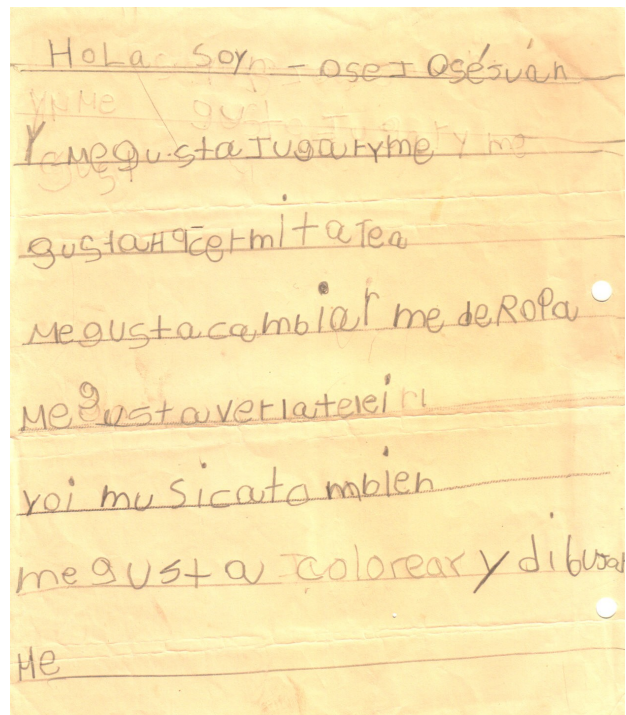 HoLa soy - ose I osésuán
Y megustaJugaryme
gustaHacermitarea
Megustacambiar me deRoPa
Me gustaverlatelei
yoi musicatambien
me gusta colorear y dibujar
Me